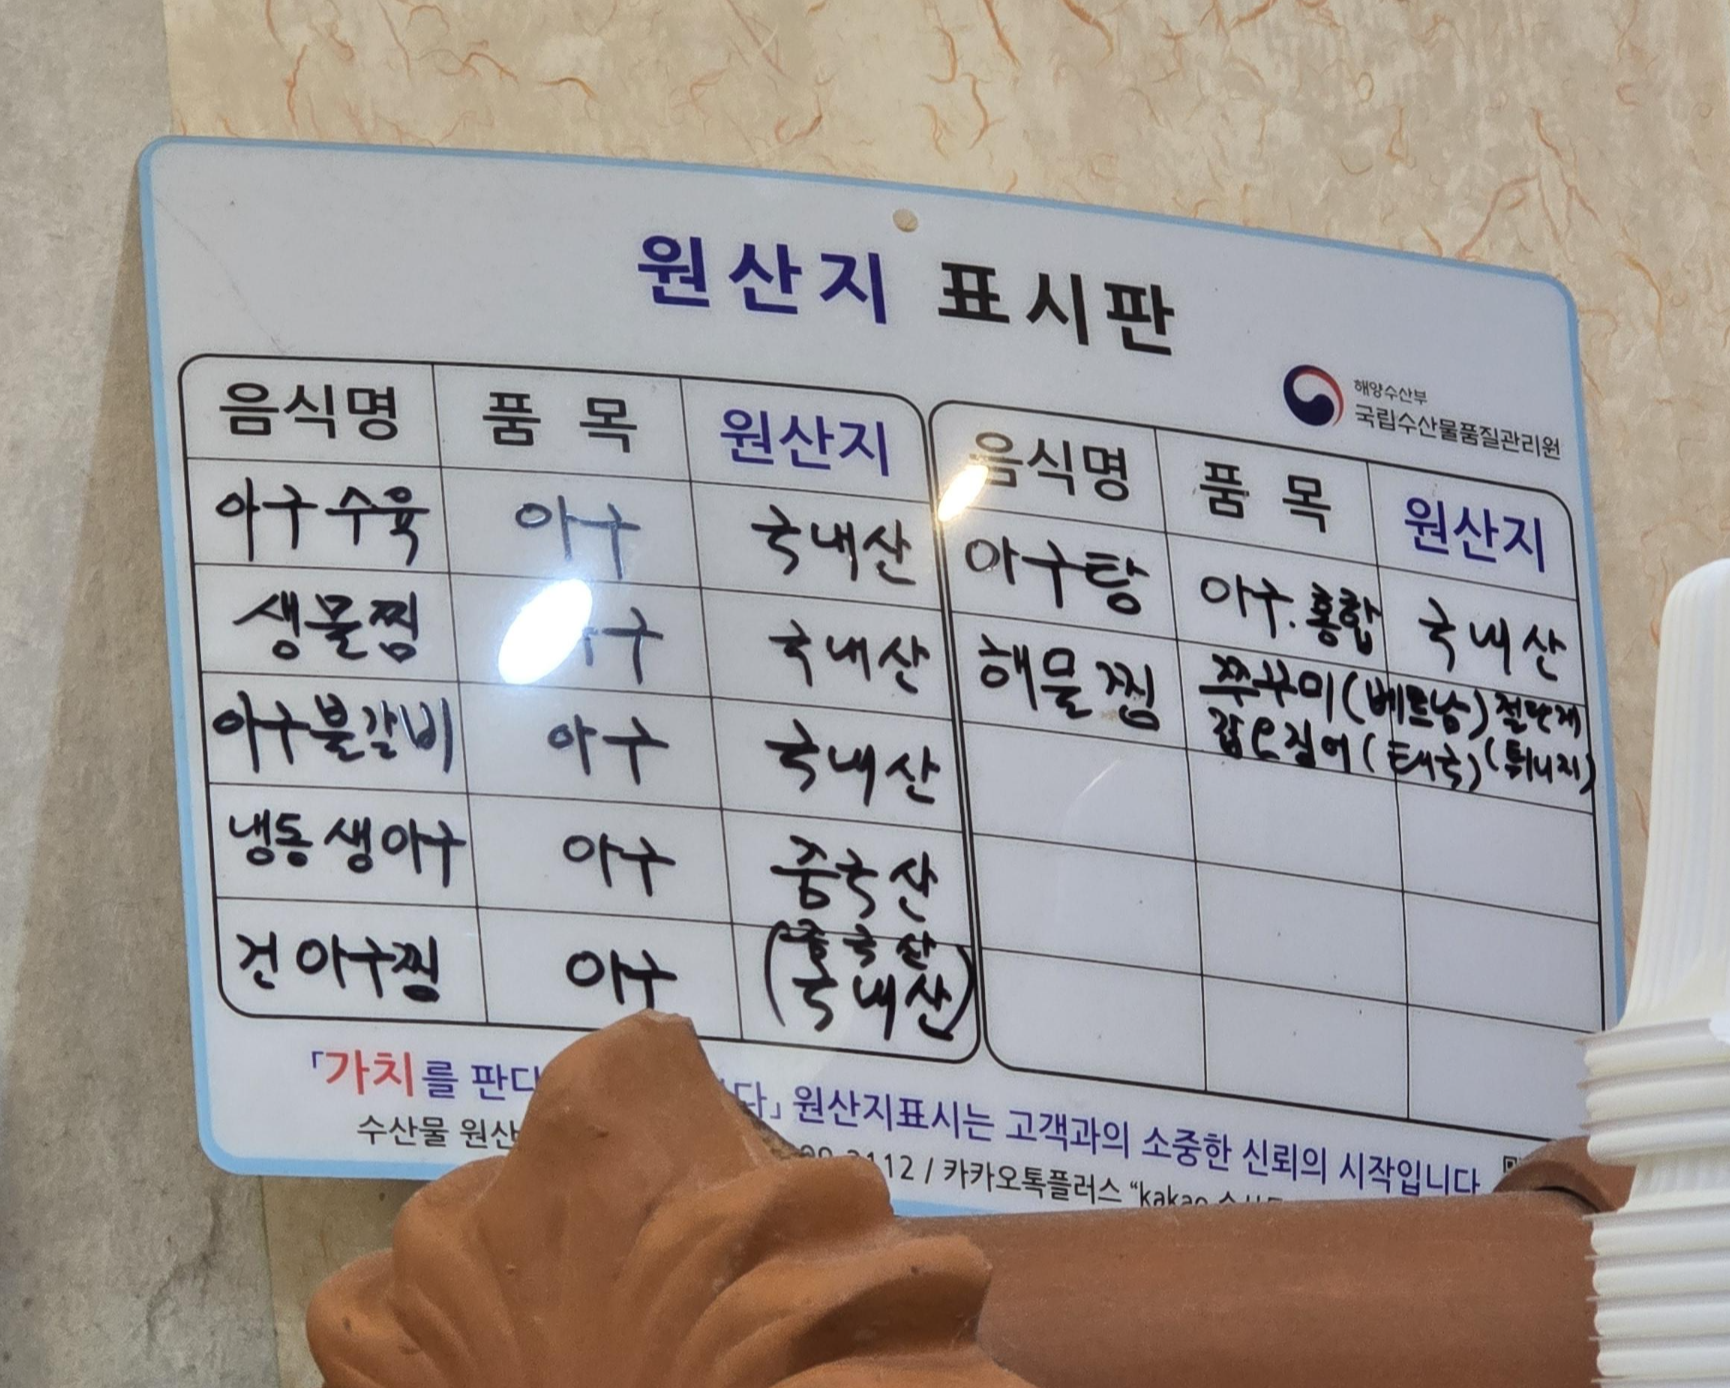 원산지 표시판
해양수산부
국립수산물품질관리원
음식명 품 목 원산지
아구수육 아구 국내산
생물찜 구 국내산
아구불갈비 아구 국내산
냉동생아구 아구 중국산
건아구찜 아구 (중국산
국내산)
음식명 품 목 원산지
아구탕 아구.홍합 국내산
해물찜 쭈꾸미(베트남)절단게
갑오징어(태국)(튀니지)
「가치를 판다 다」 원산지표시는 고객과의 소중한 신뢰의 시작입니다
수산물 원산 2112 / 카카오톡플러스 “kakao